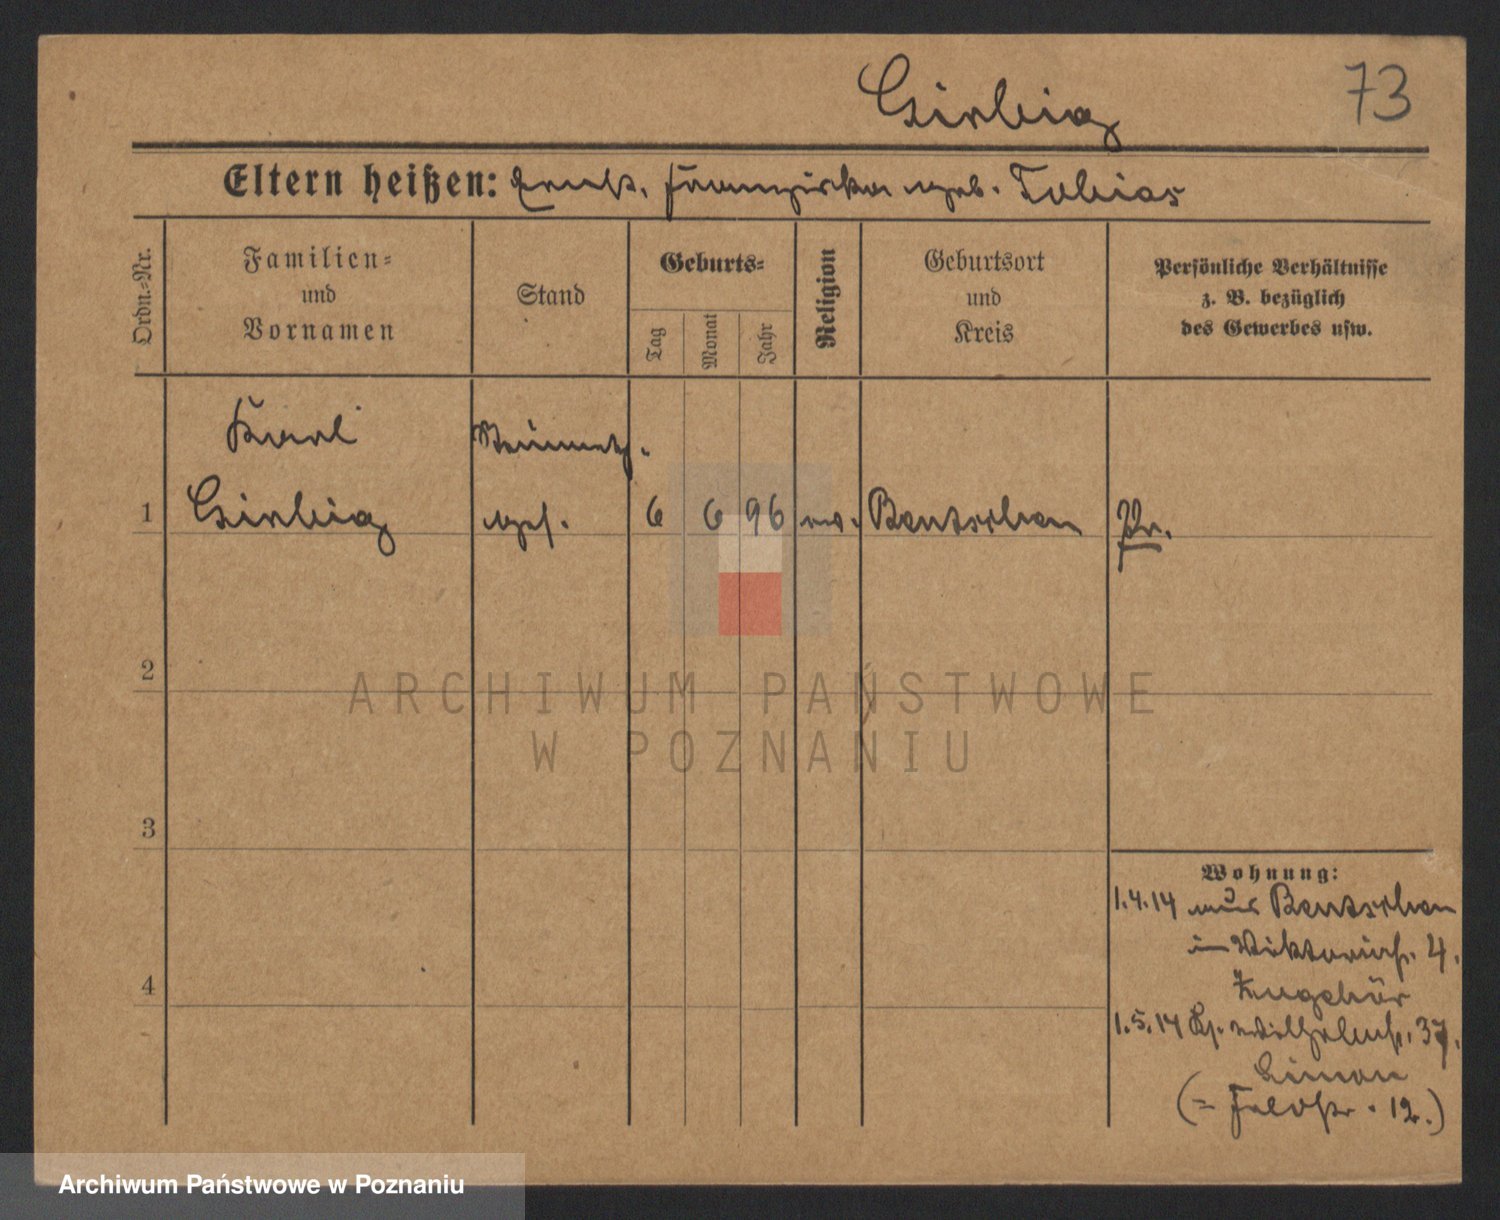 Girbig 73
Eltern heißen: Ernst. Franziska geb. Tobias
Ordn.-Nr.
Familien-
und
Vornamen
Stand
Geburts-
Tag
Monat
Jahr
Religion
Geburtsort
und
Kreis
Persönliche Verhältnisse
z. B. bezüglich
des Gewerbes usw.
Karl
1 Girbig ges. 6 6 96 ev. Bentschen Pr.
2
3
4
Wohnung:
1.4.14 aus Bentschen
in Viktoriastr. 4.
Zugehör
1.5.14 Kr. Wilhelmstr. 37.
Simon
(= Feldstr. 12.)
ARCHIWUM PAŃSTWOWE
W POZNANIU
Archiwum Państwowe w Poznaniu